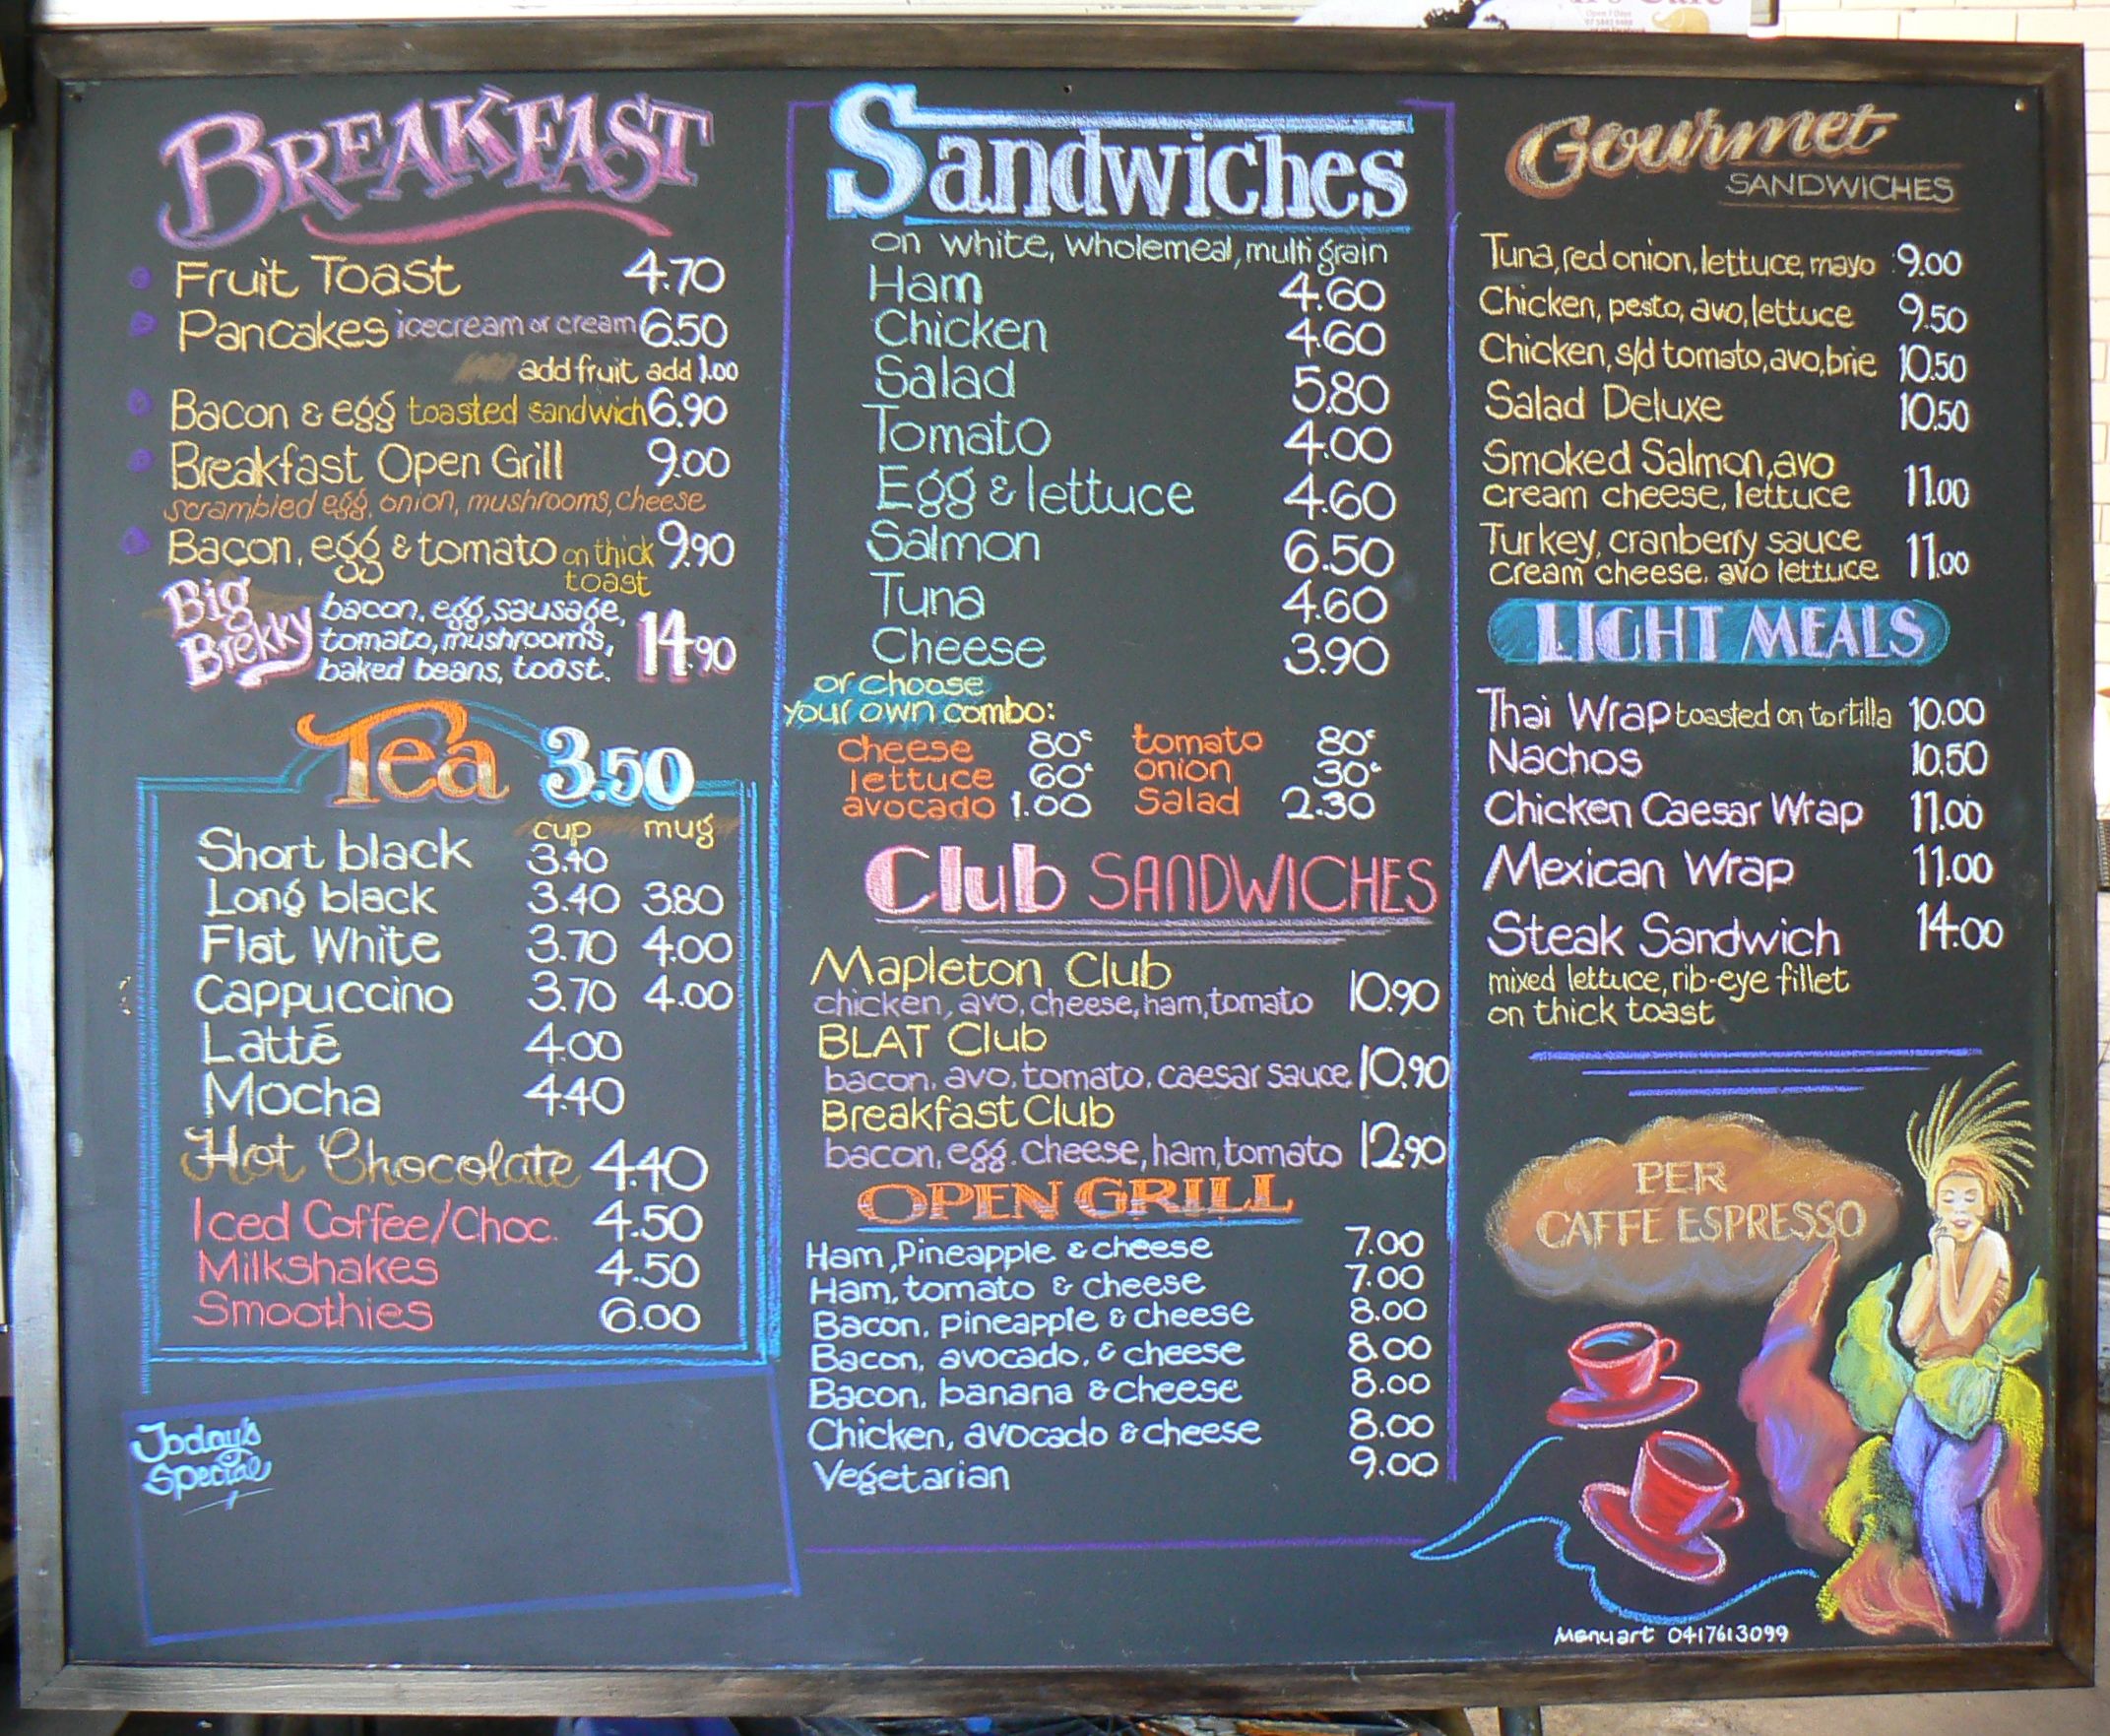 BREAKFAST
Fruit Toast 4.70
Pancakes icecream or cream 6.50
add fruit add 1.00
Bacon & egg toasted sandwich 6.90
Breakfast Open Grill 9.00
scrambled egg, onion, mushrooms, cheese
Bacon, egg & tomato on thick 9.90
toast
Big Brekky
bacon, egg, sausage,
tomato, mushrooms, 14.90
baked beans, toast.
Tea 3.50
cup mug
Short black 3.40
Long black 3.40 3.80
Flat White 3.70 4.00
Cappuccino 3.70 4.00
Latté 4.00
Mocha 4.40
Hot Chocolate 4.40
Iced Coffee/Choc. 4.50
Milkshakes 4.50
Smoothies 6.00
Today's
Special
Sandwiches
on white, wholemeal, multi grain
Ham 4.60
Chicken 4.60
Salad 5.80
Tomato 4.00
Egg & lettuce 4.60
Salmon 6.50
Tuna 4.60
Cheese 3.90
or choose
your own combo:
cheese 80c tomato 80c
lettuce 60c onion 30c
avocado 1.00 salad 2.30
Club SANDWICHES
Mapleton Club
chicken, avo, cheese, ham, tomato 10.90
BLAT Club
bacon, avo, tomato, caesar sauce 10.90
Breakfast Club
bacon, egg, cheese, ham, tomato 12.90
OPEN GRILL
Ham, Pineapple & cheese 7.00
Ham, tomato & cheese 7.00
Bacon, pineapple & cheese 8.00
Bacon, avocado, & cheese 8.00
Bacon, banana & cheese 8.00
Chicken, avocado & cheese 8.00
Vegetarian 9.00
Gourmet
SANDWICHES
Tuna, red onion, lettuce, mayo 9.00
Chicken, pesto, avo, lettuce 9.50
Chicken, s/d tomato, avo, brie 10.50
Salad Deluxe 10.50
Smoked Salmon, avo
cream cheese, lettuce 11.00
Turkey, cranberry sauce
cream cheese, avo lettuce 11.00
LIGHT MEALS
Thai Wrap toasted on tortilla 10.00
Nachos 10.50
Chicken Caesar Wrap 11.00
Mexican Wrap 11.00
Steak Sandwich 14.00
mixed lettuce, rib-eye fillet
on thick toast
PER
CAFFE ESPRESSO
Menuart 0417613099